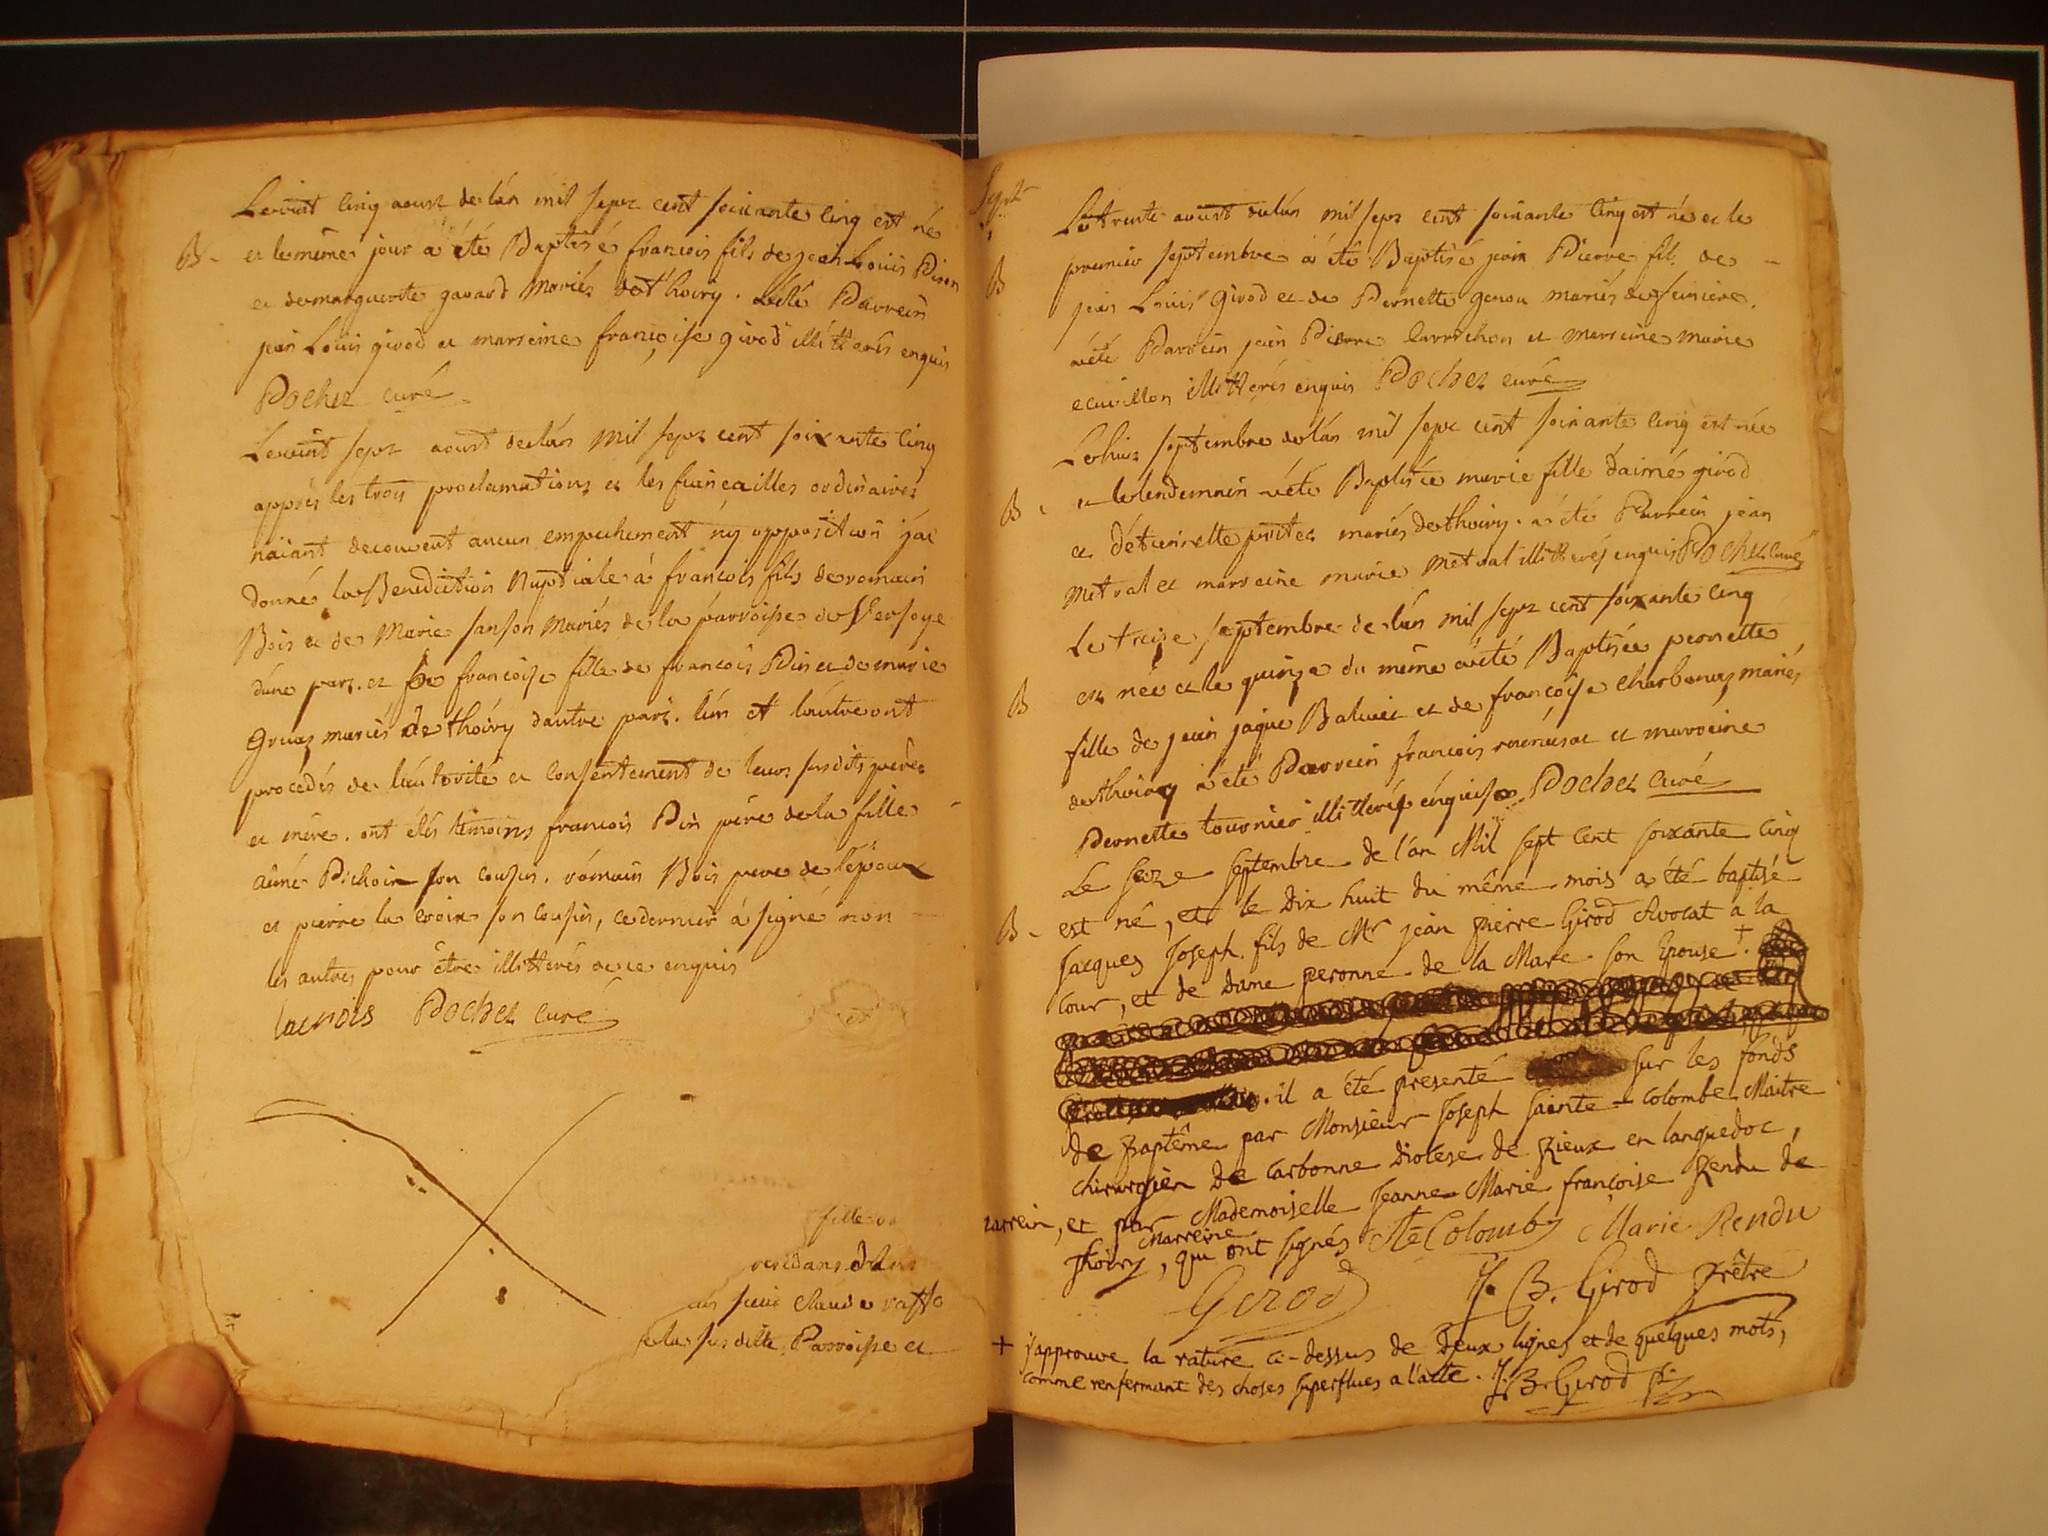 Le vint cinq aoust de lán mil sept cent soixante cinq est né
B. et le même jour à été Baptisé francois fils de jean Louis Piron
et de marguerite gavard Mariés de thoiry. à été Parrein
jean Louis girod et marreine françoise girod illitterés enquis
Pochet curé
Le vint sept aoust de lán Mil sept cent soixante cinq
apprés les trois proclamations et les fiancailles ordinaires
naiant decouvert aucun empechement ny opposition j'ai
donné la Benediction Nuptiale à francois fils de romain
Bois et de Marie sanson Mariés de la parroisse de Versoye
dúne part. et françoise fille de francois Pin et de marie
Gruaz mariés de thoiry dautre part. lún et láutre ont
procedés de láutorité et Consentement de leurs susdits peres
et mére. ont étés témoins francois Pin pére de la fille
aimé Pichoir son cousin. romain Bois pere de lépoux
et pierre la croix son cousin, ce dernier à signé non
les autres pour être illitterés de ce enquis
lacrois Pochet curé
fille
de la susditte Parroisse et
Sept
Le trente aoust de lán mil sept cent soixante cinq est né et le
premier septembre à été Baptisé jean Pierre fils de
B jean Louis Girod et de Pernette genou mariés de
à été Parrein jean Pierre et marreine marie
ecuvillon illitterés enquis Pochet curé
Le huit septembre de lán mil sept cent soixante cinq est née
B. et le lendemain à été Baptisée marie fille daimé girod
et détiennette mariés de thoiry. à été Parrein jean
Metral et marreine marie Metral illitterés enquis Pochet curé
Le treize septembre de lán mil sept cent soixante cinq
B est née et le quinze du même à été Baptisée pernette
fille de jean jaque Baluet et de françoise Charbonnay mariés
de thoiry à été Parrein francois et marreine
Pernette tournier illitterés enquis Pochet Curé
Le seize septembre de l'an Mil sept cent soixante cinq
est né, et le dix huit du même mois a été baptisé
B. Jacques Joseph fils de Mr jean pierre Girod Avocat a la
Cour, et de dame peronne de la Mare son Epouse. +
. il a été presenté sur les fonds
de Baptême par Monsieur Joseph Sainte-colombe Maitre
chirurgien de Carbonne diocèse de Rieux en languedoc,
parrein, et par Mademoiselle Jeanne Marie françoise Rendu de
Marreine
Thoiry, qui ont signés Ste Colombe Marie Rendu
Girod J. B. Girod prêtre
+ j'approuve la rature ci-dessus de Deux lignes et de quelques mots,
comme renfermant des choses superflues a l'acte. J. B. Girod